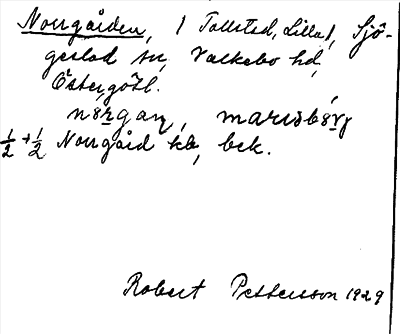 Norrgården, (Tollstad, Lilla), Sjö-
gestad sn, Valkebo hd,
Östergötl.
nórgan, marisbärj
½ + ½ Norrgård kb, bek.
Robert Pettersson 1929